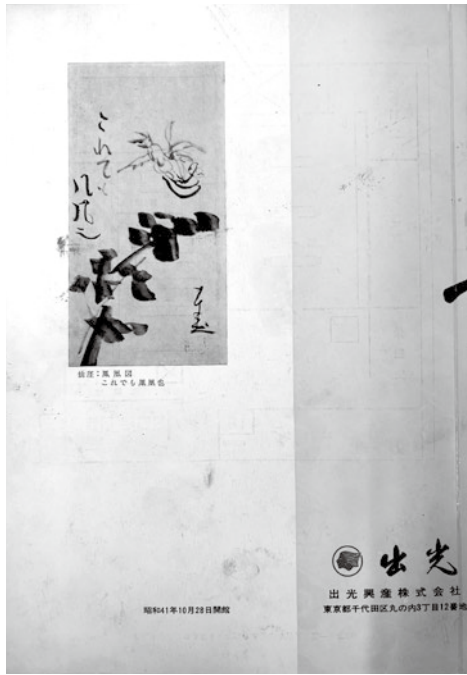 これても
仙厓：鳳凰図
これでも鳳凰也
昭和41年10月28日開館
出光
出光興産株式会社
東京都千代田区丸の内3丁目12番地